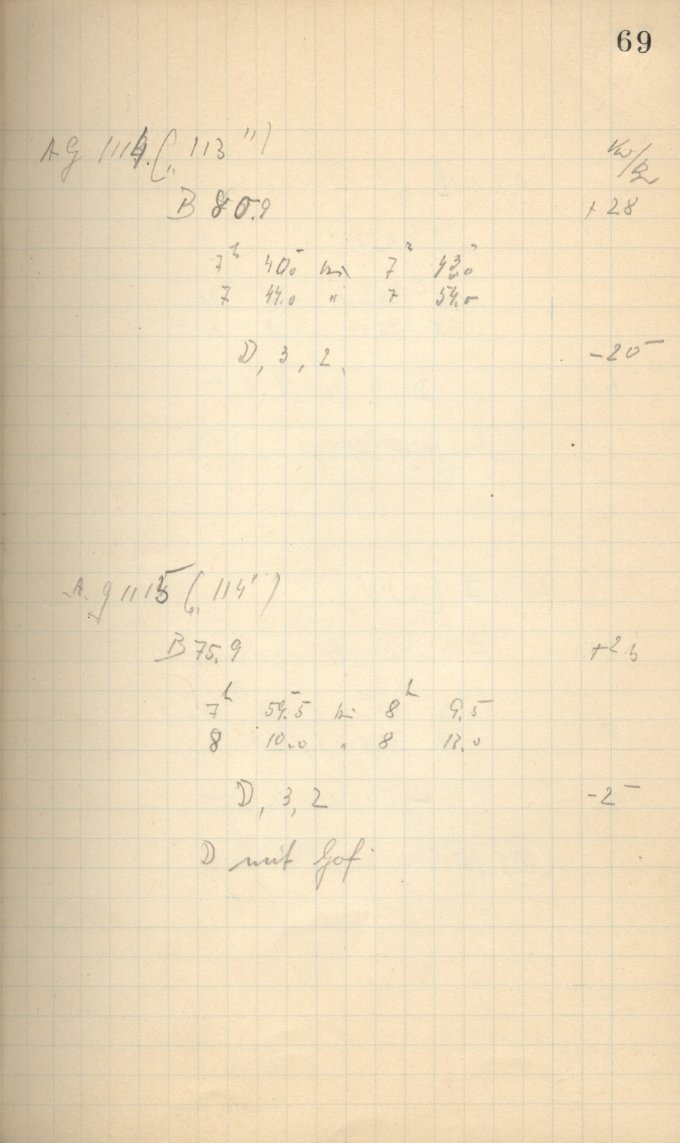 69
AG 1114. („ 113")
B 80.9 +28
7h 40.0 bis 7h 43.0
7 44.0 " 7 54.0
D, 3, 2, -20
A.G 1115 („ 114')
B 75.9
7h 59.5 bis 8h 9.5
8 10.0 " 8 13.0
D, 3, 2 -2
D mit Hof